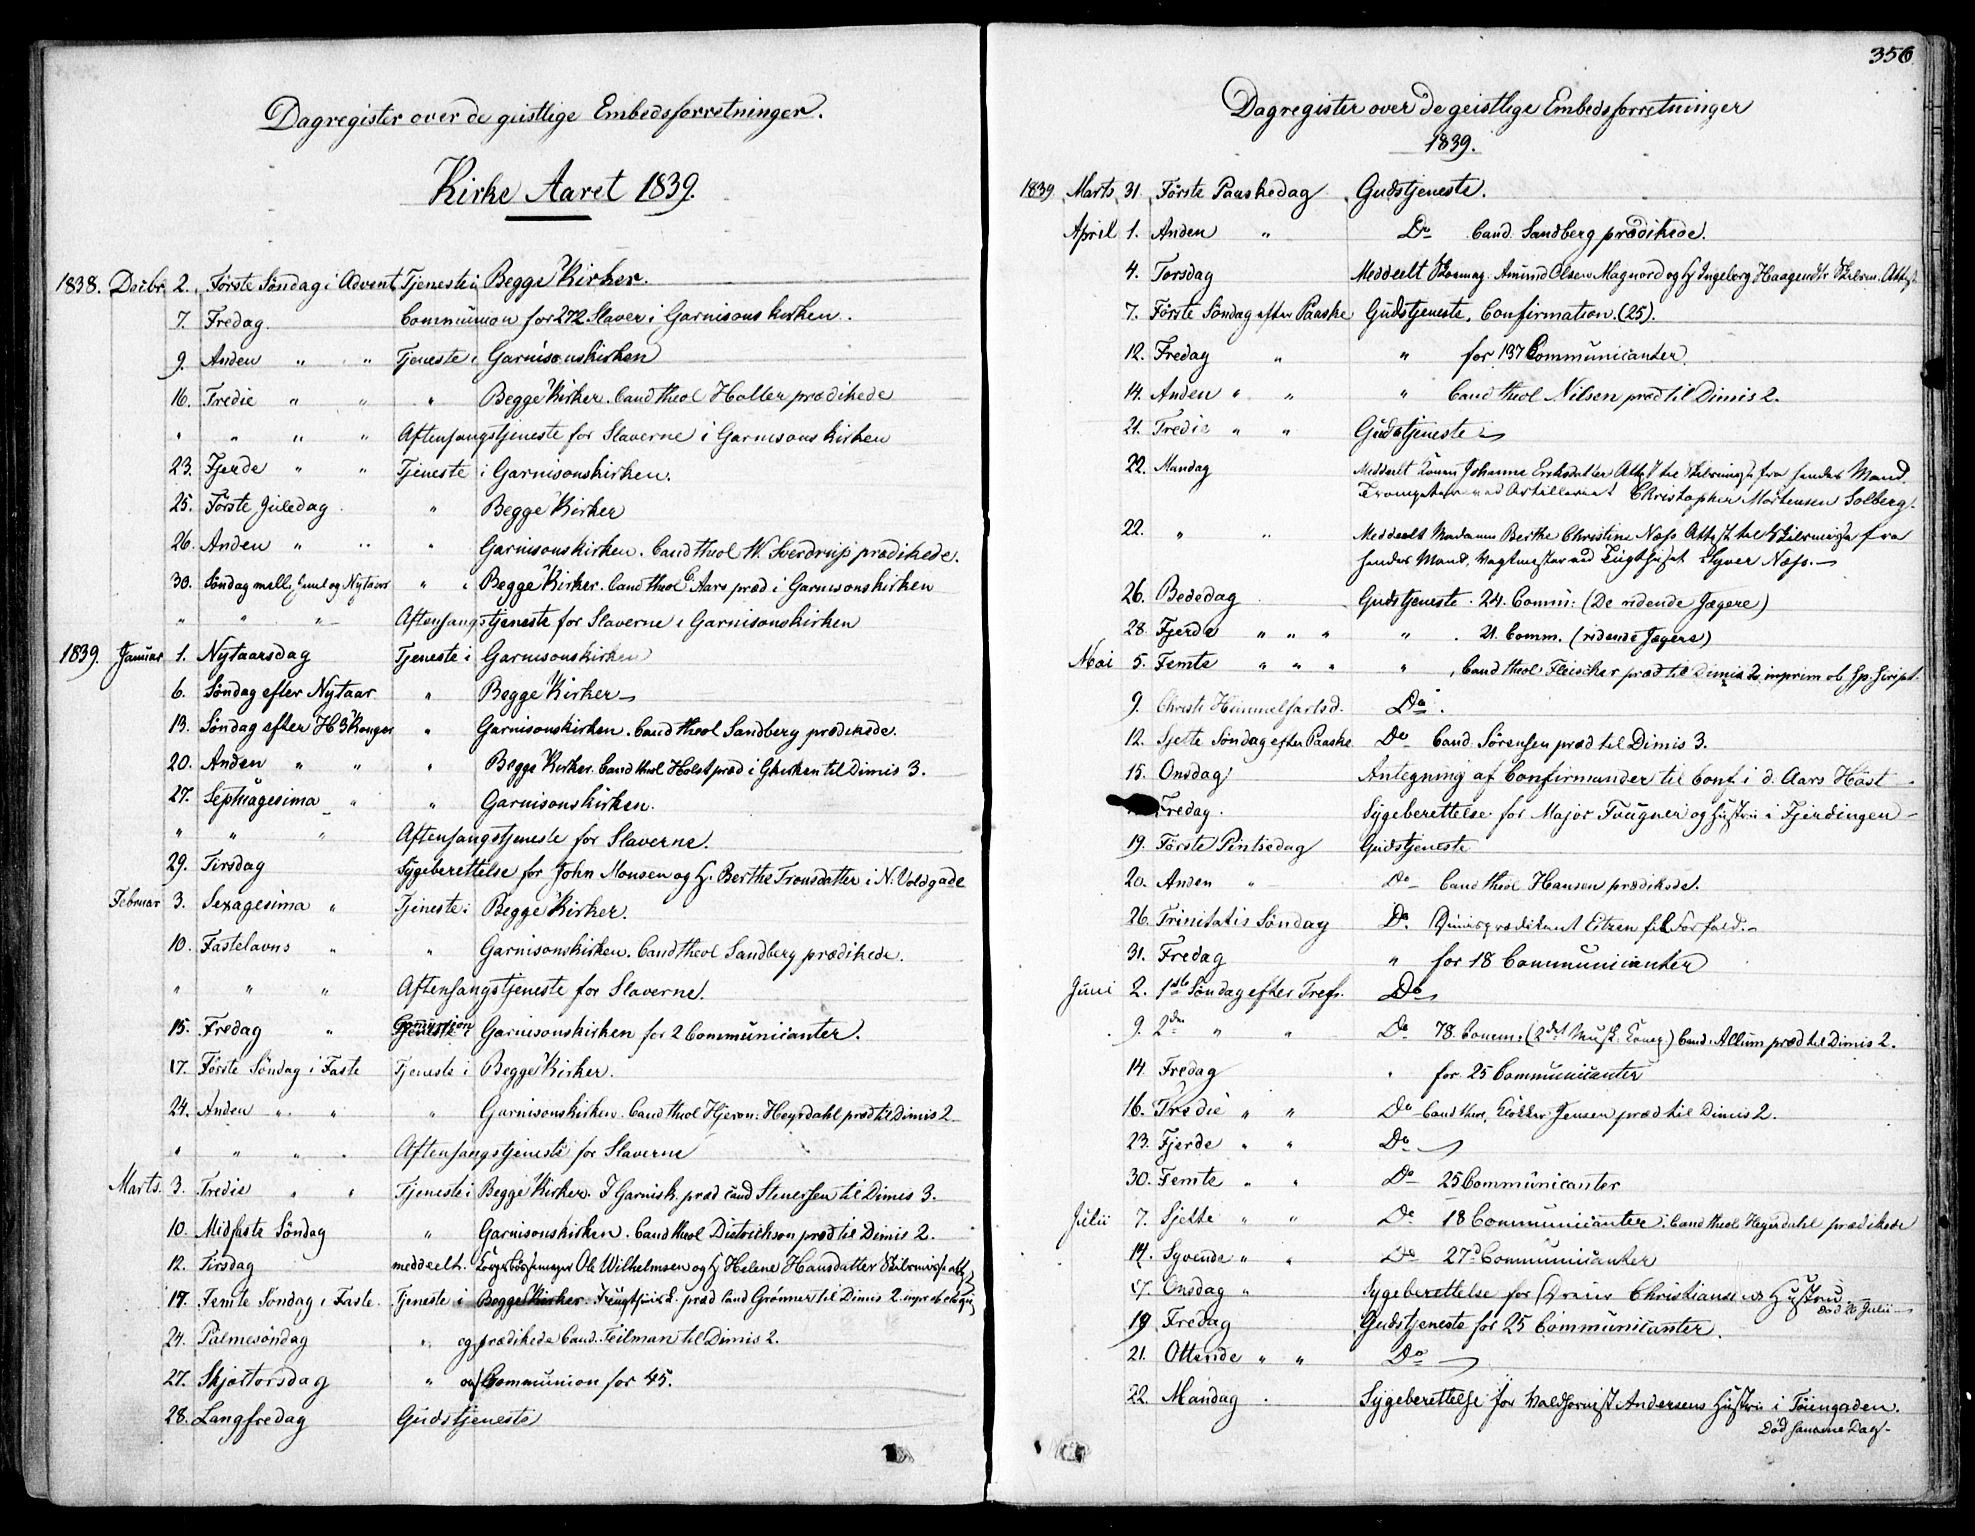 Dagregister over de geistlige Embedsforretninger.
Kirke Aaret 1839.
1838. Decbr. 2. Første Søndag i Advent Tjeneste i Begge Kirker.
7. Fredag. Communion for 272 Slaver i Garnisons kirken.
9. Anden " " Tjeneste i Garnisonskirken
16. Tredie " " " Begge Kirker. Cand theol Holler prædikede
" " " " Aftensangstjeneste for Slaverne i Garnisons kirken
23. Fjerde " " Tjeneste i Garnisonskirken.
25. Første Juledag " Begge Kirker
26. Anden " " " Garnisonskirken. Cand theol W. Sverdrup prædikede.
30. Søndag mell. Juul og Nytaar " i Begge Kirker. Cand theol G Aars præd i Garnisonskirken
" " " Aftensangstjeneste for Slaverne i Garnisonskirken
1839. Januar 1. Nytaarsdag Tjeneste i Garnisonskirken
6. Søndag efter Nytaar " Begge Kirker
13. Søndag efter H 3 Konger " Garnisonskirken. Cand theol Sandberg prædikede.
20. Anden " " " Begge Kirker. Cand theol Holst præd i Gkirken til Dimis 3.
27. Septuagesima " " Garnisonskirken.
" " " Aftensangstjeneste for Slaverne.
29. Tirsdag Sygeberettelse for John Monsen og H. Berthe Tronsdatter i N. Voldgade
Februar 3. Sexagesima " Tjeneste i Begge Kirker.
10. Fastelavns " " Garnisonskirken. Cand theol Sandberg prædikede.
" " " Aftensangstjeneste for Slaverne.
15. Fredag " Communion Garnisonskirken for 2 Communicanter.
17. Første Søndag i Faste Tjeneste i Begge Kirker.
24. Anden " " " Garnisonskirken. Cand theol Hjeron: Heyrdahl præd til Dimis 2
" " " " Aftensangstjeneste for Slaverne
Marts. 3. Tredie " " Tjeneste i Begge Kirker. I Garnisk. præd cand Stenersen til Dimis 3.
10. Midfaste Søndag " Garnisonskirken. Cand theol Dietrichson præd til Dimis 2.
12. Tirsdag meddeelt Ole Wilhelmsen og H Helene Hansdatter
17. Femte Søndag i Faste. Tjeneste i Begge Kirker. præd Cand Grønner til Dimis 2
24. Palmesøndag " og prædikede Cand. Teilman til Dimis 2.
27. Skjærtorsdag " og Communion for 45.
28. Langfredag Gudstjeneste
356
Dagregister over de geistlige Embedsforretninger
1839.
1839 Marts 31. Første Paaskedag Gudstjeneste.
April 1. Anden " Do Cand. Sandberg prædikede.
4. Torsdag Meddeelt Amund Olsen Magnord og H Ingeborg Haagensdtr Skilsm. Attest
7. Første Søndag efter Paaske Gudstjeneste, Confirmation. (25).
12. Fredag " " for 137 Communicanter
14. Anden " " " Cand theol Nilsen præd til Dimis 2.
21. Tredie " " Gudstjeneste
22. Mandag Meddeelt Konen Johanne Eriksdatter Attest til Skilsmisse fra hendes Mand,
Trompeter ved Artilleriet Christopher Mortensen Solberg.
22. " " Meddeelt Madame Berthe Christine Næss Attest til Skilsmisse fra
hendes Mand, Vagtmester ved Tugthuset Elyver Næss.
26. Bededag Gudstjeneste. 24. Comm: (De ridende Jægere)
28. Fjerde " " " " . 21. Comm. (ridende Jægere)
Mai 5. Femte " " " " , Cand theol Fleischer præd til Dimis 2 imprim ob
9. Christi Himmelfartsd. Do.
12. Sjette Søndag efter Paaske Do Cand. Sørensen præd til Dimis 3.
15. Onsdag Antegning af Confirmander til Conf. i d. Aars Høst
Fredag. Sygeberettelse for Major Fougner og Hustru i Fjerdingen
19. Første Pintsedag Gudstjeneste
20. Anden " Do Cand theol Hansen prædikede.
26. Trinitatis Søndag Do. Eitzen fik Forfald.
31. Fredag " for 18 Communicanter
Juni 2. 1ste Søndag efter Tref. Do
9. 2den " " Do 78 Comm. (2det Musk. Comp.) Cand. Allum præd til Dimis 2.
14. Fredag " for 25 Communicanter
16. Tredie " " Do Cand theol. Kløcker Jensen præd til Dimis 2.
23. Fjerde " " Do
30. Femte " " Do 25 Communicanter
Julii 7. Sjette " " Do 18 Communicanter. Cand theol Heyerdahl prædikede
14. Syvende " " Do 27 Communicanter
17. Onsdag " Sygeberettelse for Christianse Hustru
død 26 Julii
19 Fredag Gudstjeneste for 25 Communicanter.
21. Ottende " " Do
22. Mandag . Sygeberettelse for Andersens Hustru i Tøiengaden.
Død samme Dag